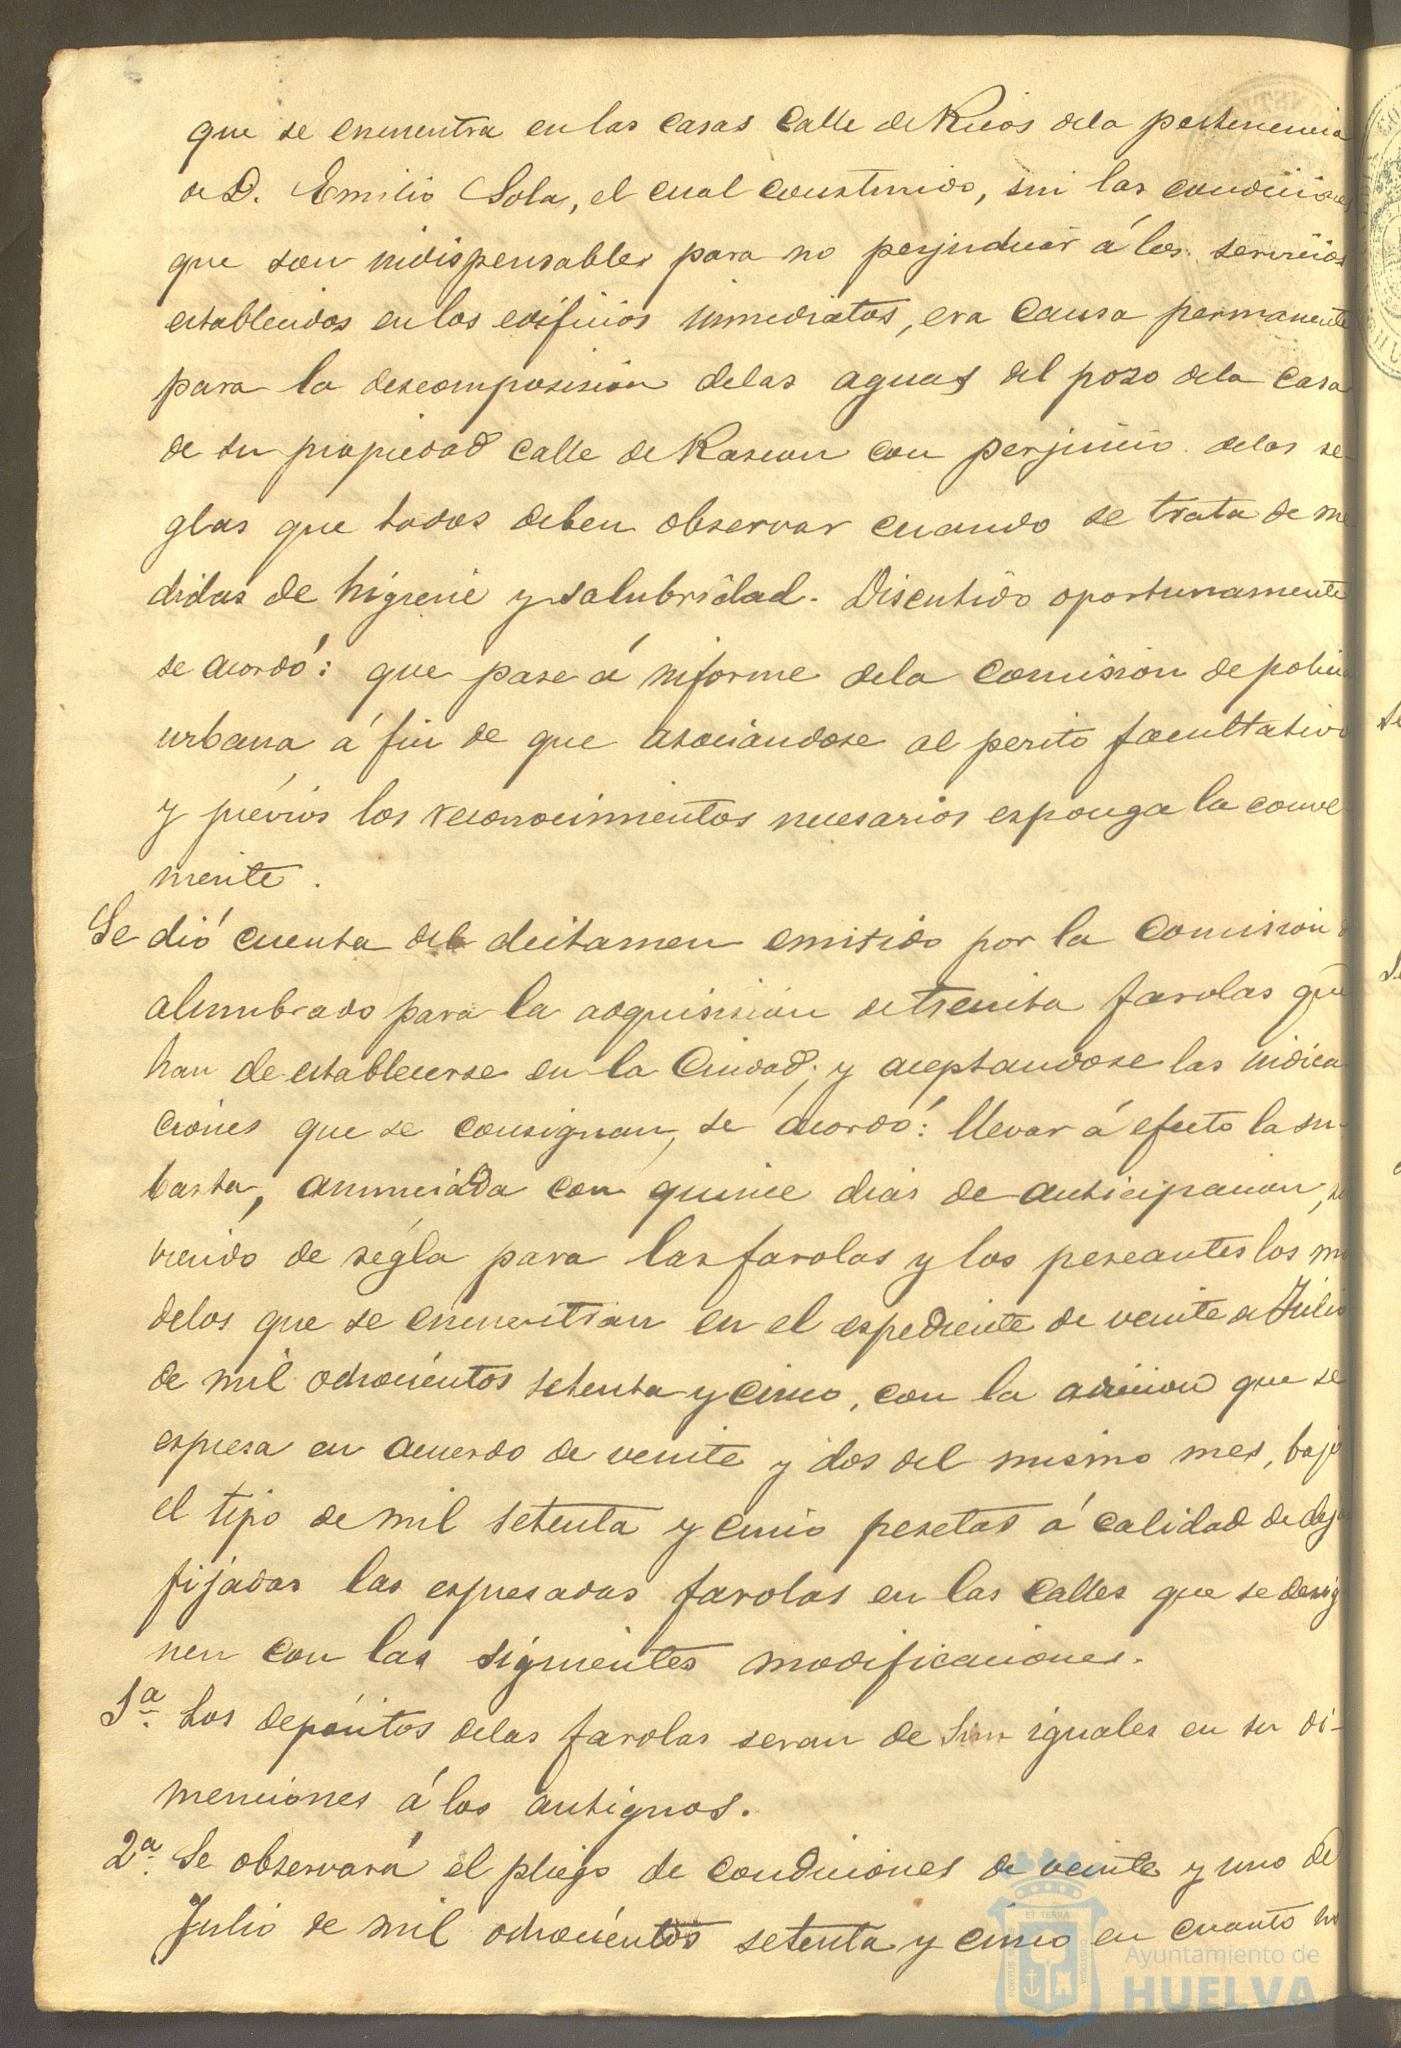 que se encuentra en las casas calle de Ricos dela pertenencia
de D. Emilio Sola, el cual construido, sin las condiciones
que son indispensables para no perjudicar á los servicios
establecidos en los edificios inmediatos, era causa permanente
para la descomposision delas aguas del pozo dela casa
de su propiedad calle de Rascon con perjuicio delas re-
glas que todos deben observar cuando se trata de me
didas de higiene y salubridad. Discutido oportunamente
se acordó: que pase á informe dela Comision de policia
urbana á fin de que asociandose al perito facultativo
y prévios los reconocimientos necesarios esponga la conve-
niente.
Se dió cuenta del dictamen emitido por la Comision de
alumbrado para la adquisision de treinta farolas que
han de establecerse en la Ciudad; y aceptandose las indica
ciones que se consignan, se acordó: llevar á efecto la su-
basta, anunciada con quince dias de anticipacion, sir
viendo de régla para las farolas y los pescantes los mo
delos que se encuentran en el espediente de veinte de Julio
de mil ochocientos setenta y cinco, con la adicion que se
espresa en acuerdo de veinte y dos del mismo mes, bajo
el tipo de mil setenta y cinco pesetas á calidad de dejar
fijadas las espresadas farolas en las calles que se desig
nen con las siguientes modificaciones.
1ª Los depósitos delas farolas seran de iguales en su di-
menciones á los antiguos.
2ª Se observará el pliego de condiciones de veinte y uno de
Julio de mil ochocientos setenta y cinco en cuanto no
Ayuntamiento de
HUELVA